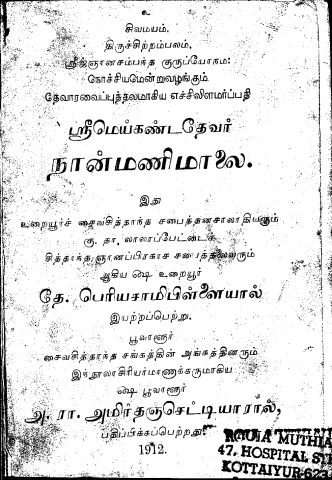 உ
சிவமயம்.
திருச்சிற்றம்பலம்.
ஸ்ரீஞானசம்பந்த குருப்யோநம:
நொச்சியமென்றுவழங்கும்
தேவாரவைப்புத்தலமாகிய எச்சிலிளமர்ப்பதி
ஸ்ரீமெய்கண்டதேவர்
நான்மணிமாலை.
இது
உறையூர்ச் சைவசித்தாந்த சபைத்தனசாலாதிபரும்
கு. தா. லாலாப்பேட்டைச்
சித்தாந்த ஞானப்பிரகாச சபைத்தலைவரும்
ஆகிய ௸ உறையூர்
தே. பெரியசாமிபிள்ளையால்
இயற்றப்பெற்று.
பூவாளூர்
சைவசித்தாந்த சங்கத்தின் அங்கத்தினரும்
இந்நூலாசிரியர்மாணாக்கருமாகிய
௸ பூவாளூர்
அ. ரா. அமிர்தஞ்செட்டியாரால்,
பதிப்பிக்கப்பெற்றது.
1912.
ROJA MUTHIA
47, HOSPITAL ST
KOTTAIYUR-623